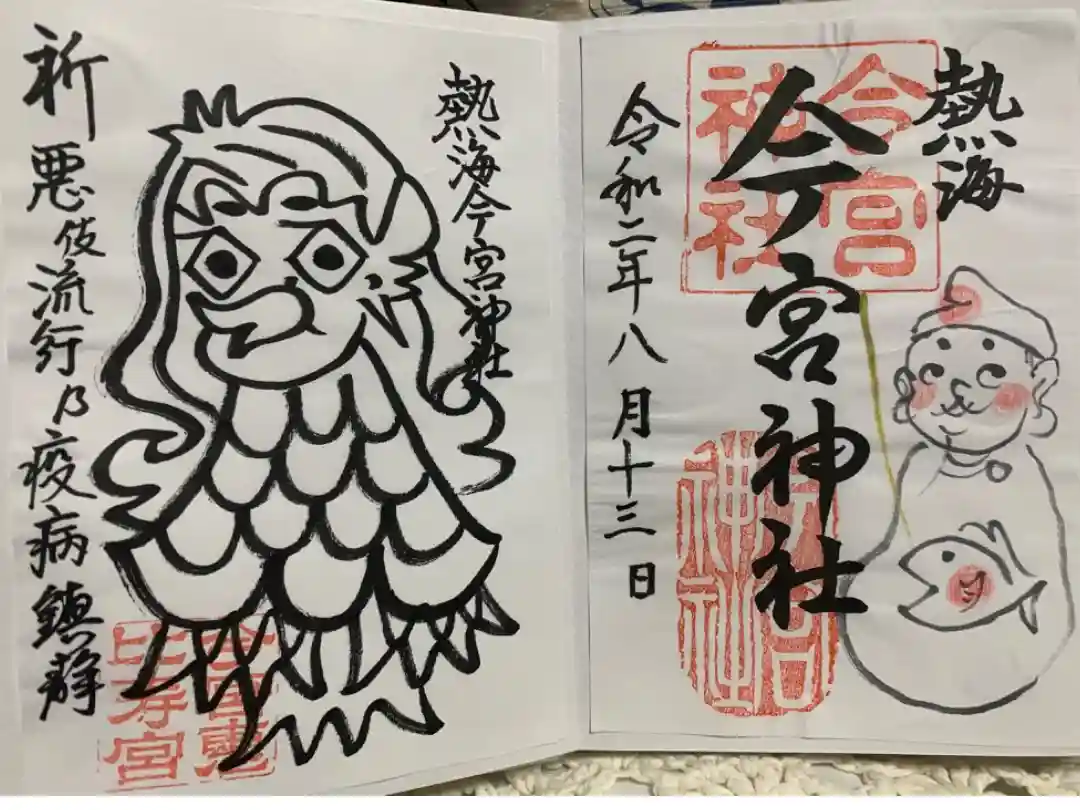 熱海
今宮神社
令和二年八月十三日
今宮
神社
熱海今宮神社
祈悪伎流行乃疫病鎮静
今宮恵
比寿宮